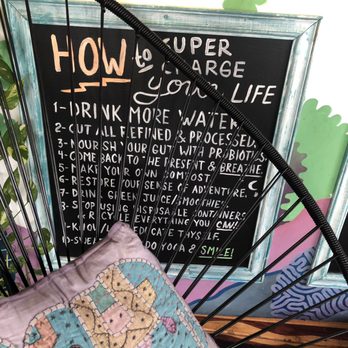 HOW to SUPER
CHARGE
your LIFE
1- DRINK MORE WATER.
2- CUT ALL REFINED & PROCESSED.
3- NOURISH YOUR GUT WITH PROBIOTICS
4- COME BACK TO THE PRESENT & BREATHE.
5- MAKE YOUR OWN COMPOST.
6- RESTORE YOUR SENSE OF ADVENTURE.
7- DRINK GREEN JUICE/SMOOTHIES
8- STOP USING DISPOSABLE CONTAINERS
& RECYCLE EVERYTHING YOU CAN!
9- EDUCATE THYSELF.
10- DO YOGA & SMILE!